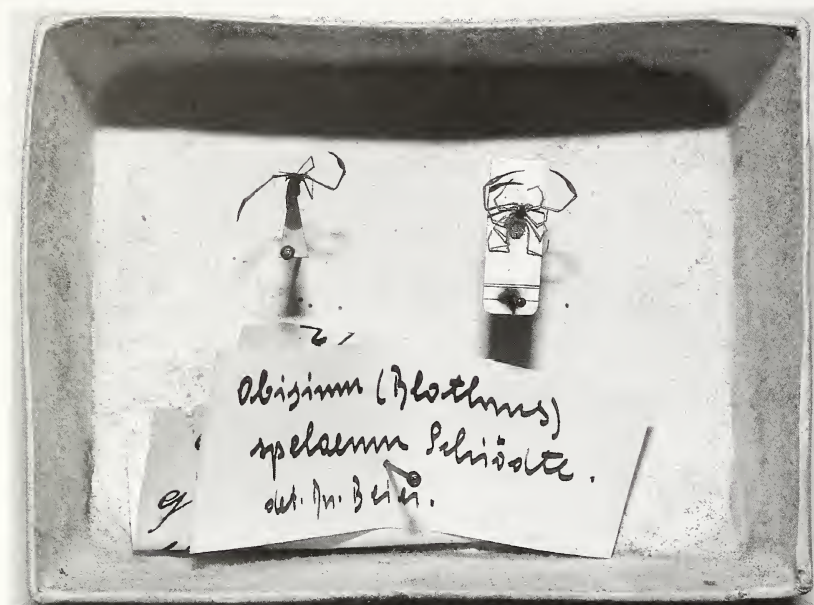 Obisium (Blothrus)
spelaeum Schiödte.
det. Dr. Beier.